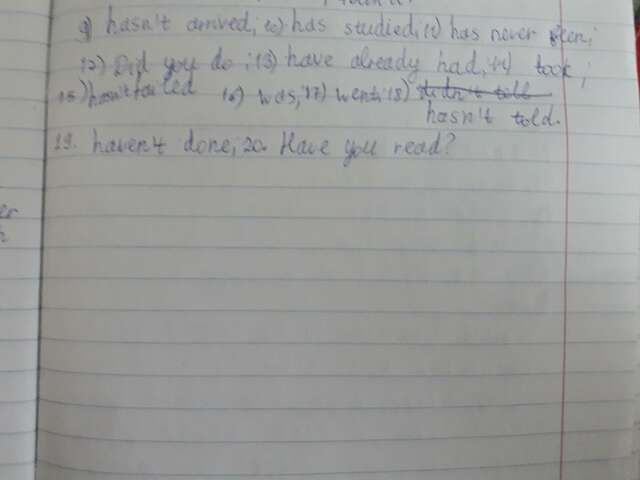 9) hasn't arrived; 10) has studied; 11) has never been;
12) Did you do; 13) have already had; 14) took;
15) hasn't failed 16) was; 17) went; 18) didn't tell
hasn't told.
19. haven't done; 20. Have you read?